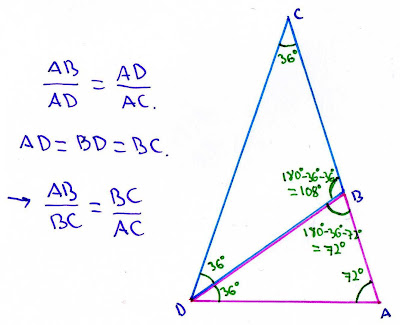 AB/AD = AD/AC.
AD = BD = BC.
→ AB/BC = BC/AC
C
36°
180°-36°-36°
=108°
B
180°-36-72°
=72°
36°
36°
72°
D
A